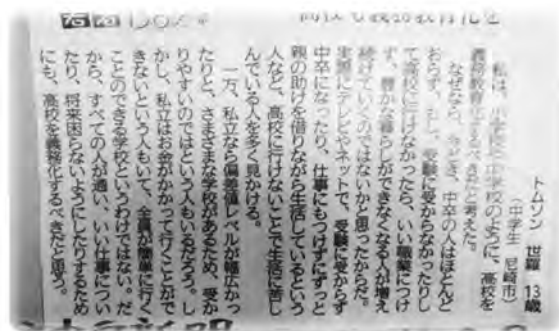 トムソン 世羅 13歳
(中学生 尼崎市)
私は、小学校や中学校のように、高校を
義務教育化するべきだと考えた。
なぜなら、今どき、中卒の人はほとんど
おらず、もし、受験に受からなかったりし
て高校に行けなかったら、いい職業につけ
ず、豊かな暮らしができなくなる人が増え
続けていくのではないかと思ったからだ。
実際にテレビやネットで、受験に受からず
中卒になったり、仕事にもつけずにずっと
親の助けを借りながら生活しているという
人など、高校に行けないことで生活に苦し
んでいる人を多く見かける。
一方、私立なら偏差値レベルが幅広かっ
たりと、さまざまな学校があるため、受か
りやすいのではという人もいるだろう。し
かし、私立はお金がかかって行くことがで
きないという人もいて、全員が簡単に行く
ことのできる学校というわけではない。だ
から、すべての人が通い、いい仕事につい
たり、将来困らないようにしたりするため
にも、高校を義務化するべきだと思う。